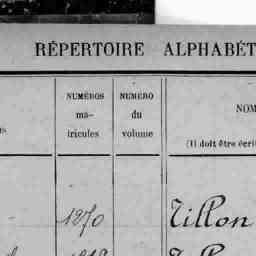 RÉPERTOIRE ALPHABÉT
NUMÉROS
ma-
tricules
NUMÉRO
du
volume
NOM
(Il doit être écri
1270
Tillon